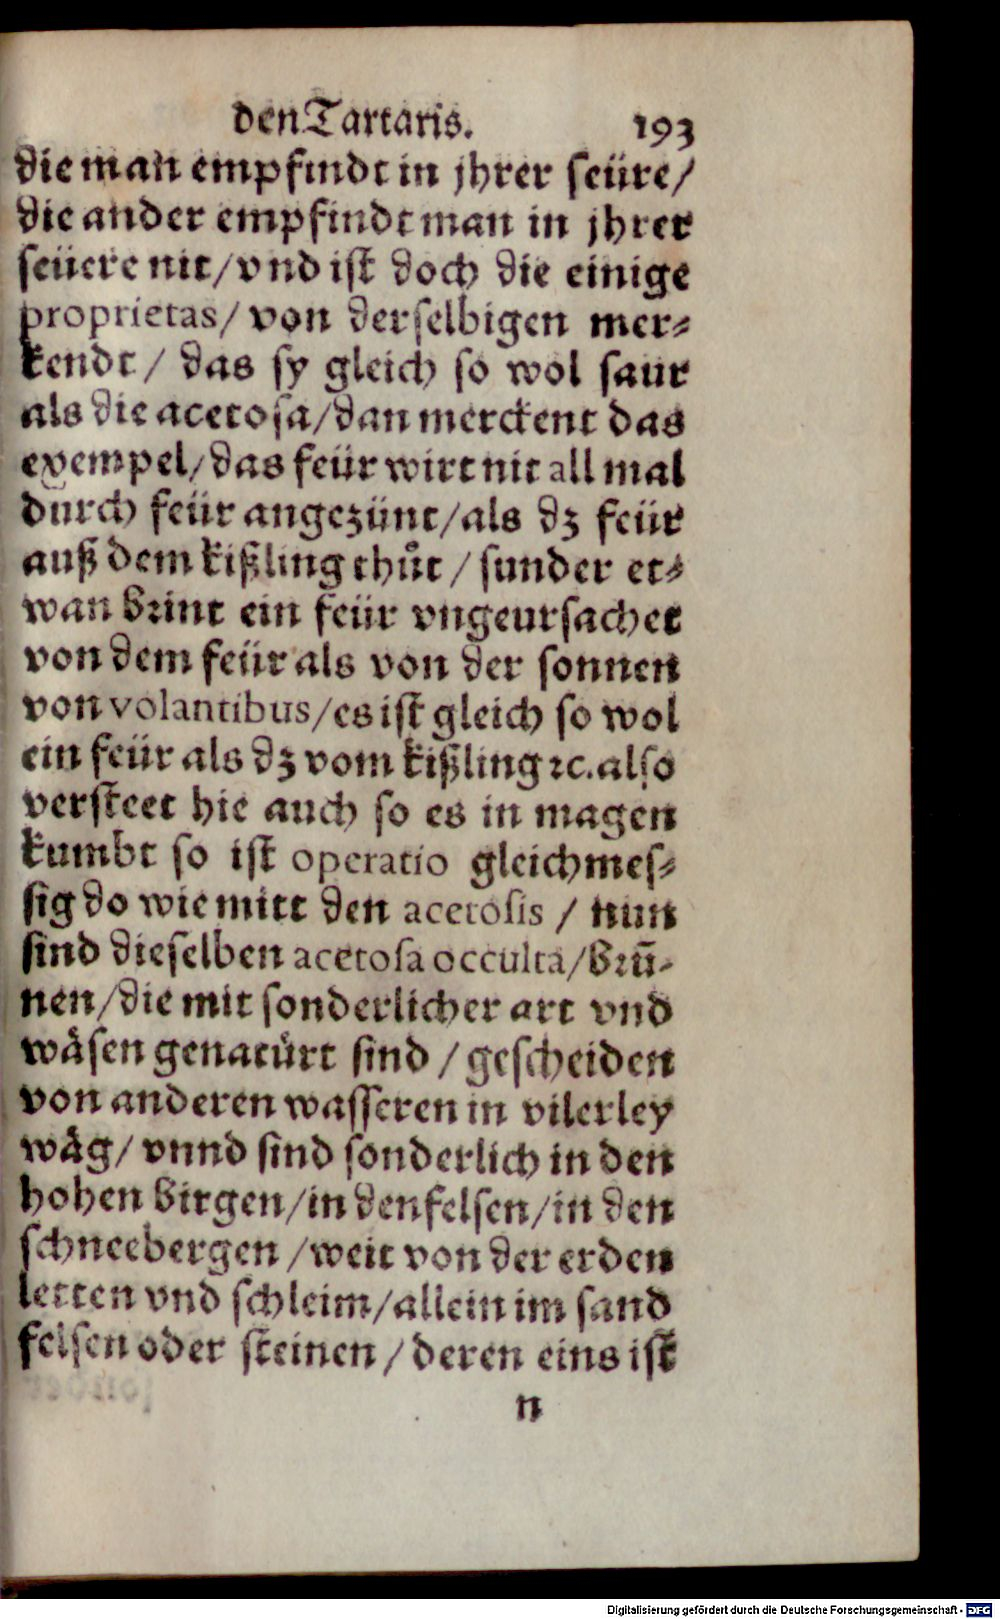 den Tartaris. 193
die man empfindt in jhrer seüre/
die ander empfindt man in jhrer
seüere nit/vnd ist doch die einige
proprietas/ von derselbigen mer⸗
kendt/ das sy gleich so wol saur
als die acetosa/dan merckent das
exempel/das feür wirt nit all mal
durch feür angezünt/als dz feür
auß dem kißling thůt/ sunder et⸗
wan brint ein feür vngeursachet
von dem feür als von der sonnen
von volantibus/es ist gleich so wol
ein feür als dz vom kißling ꝛc. also
versteet hie auch so es in magen
kumbt so ist operatio gleichmes⸗
sig do wie mitt den acetosis/ nun
sind dieselben acetosa occulta/brū⸗
nen/die mit sonderlicher art vnd
wäsen genatürt sind/ gescheiden
von anderen wasseren in vilerley
wäg/ vnnd sind sonderlich in den
hohen birgen/in den felsen/in den
schneebergen/weit von der erden
letten vnd schleim/allein im sand
felsen oder steinen/ deren eins ist
n
Digitalisierung gefördert durch die Deutsche Forschungsgemeinschaft - DFG